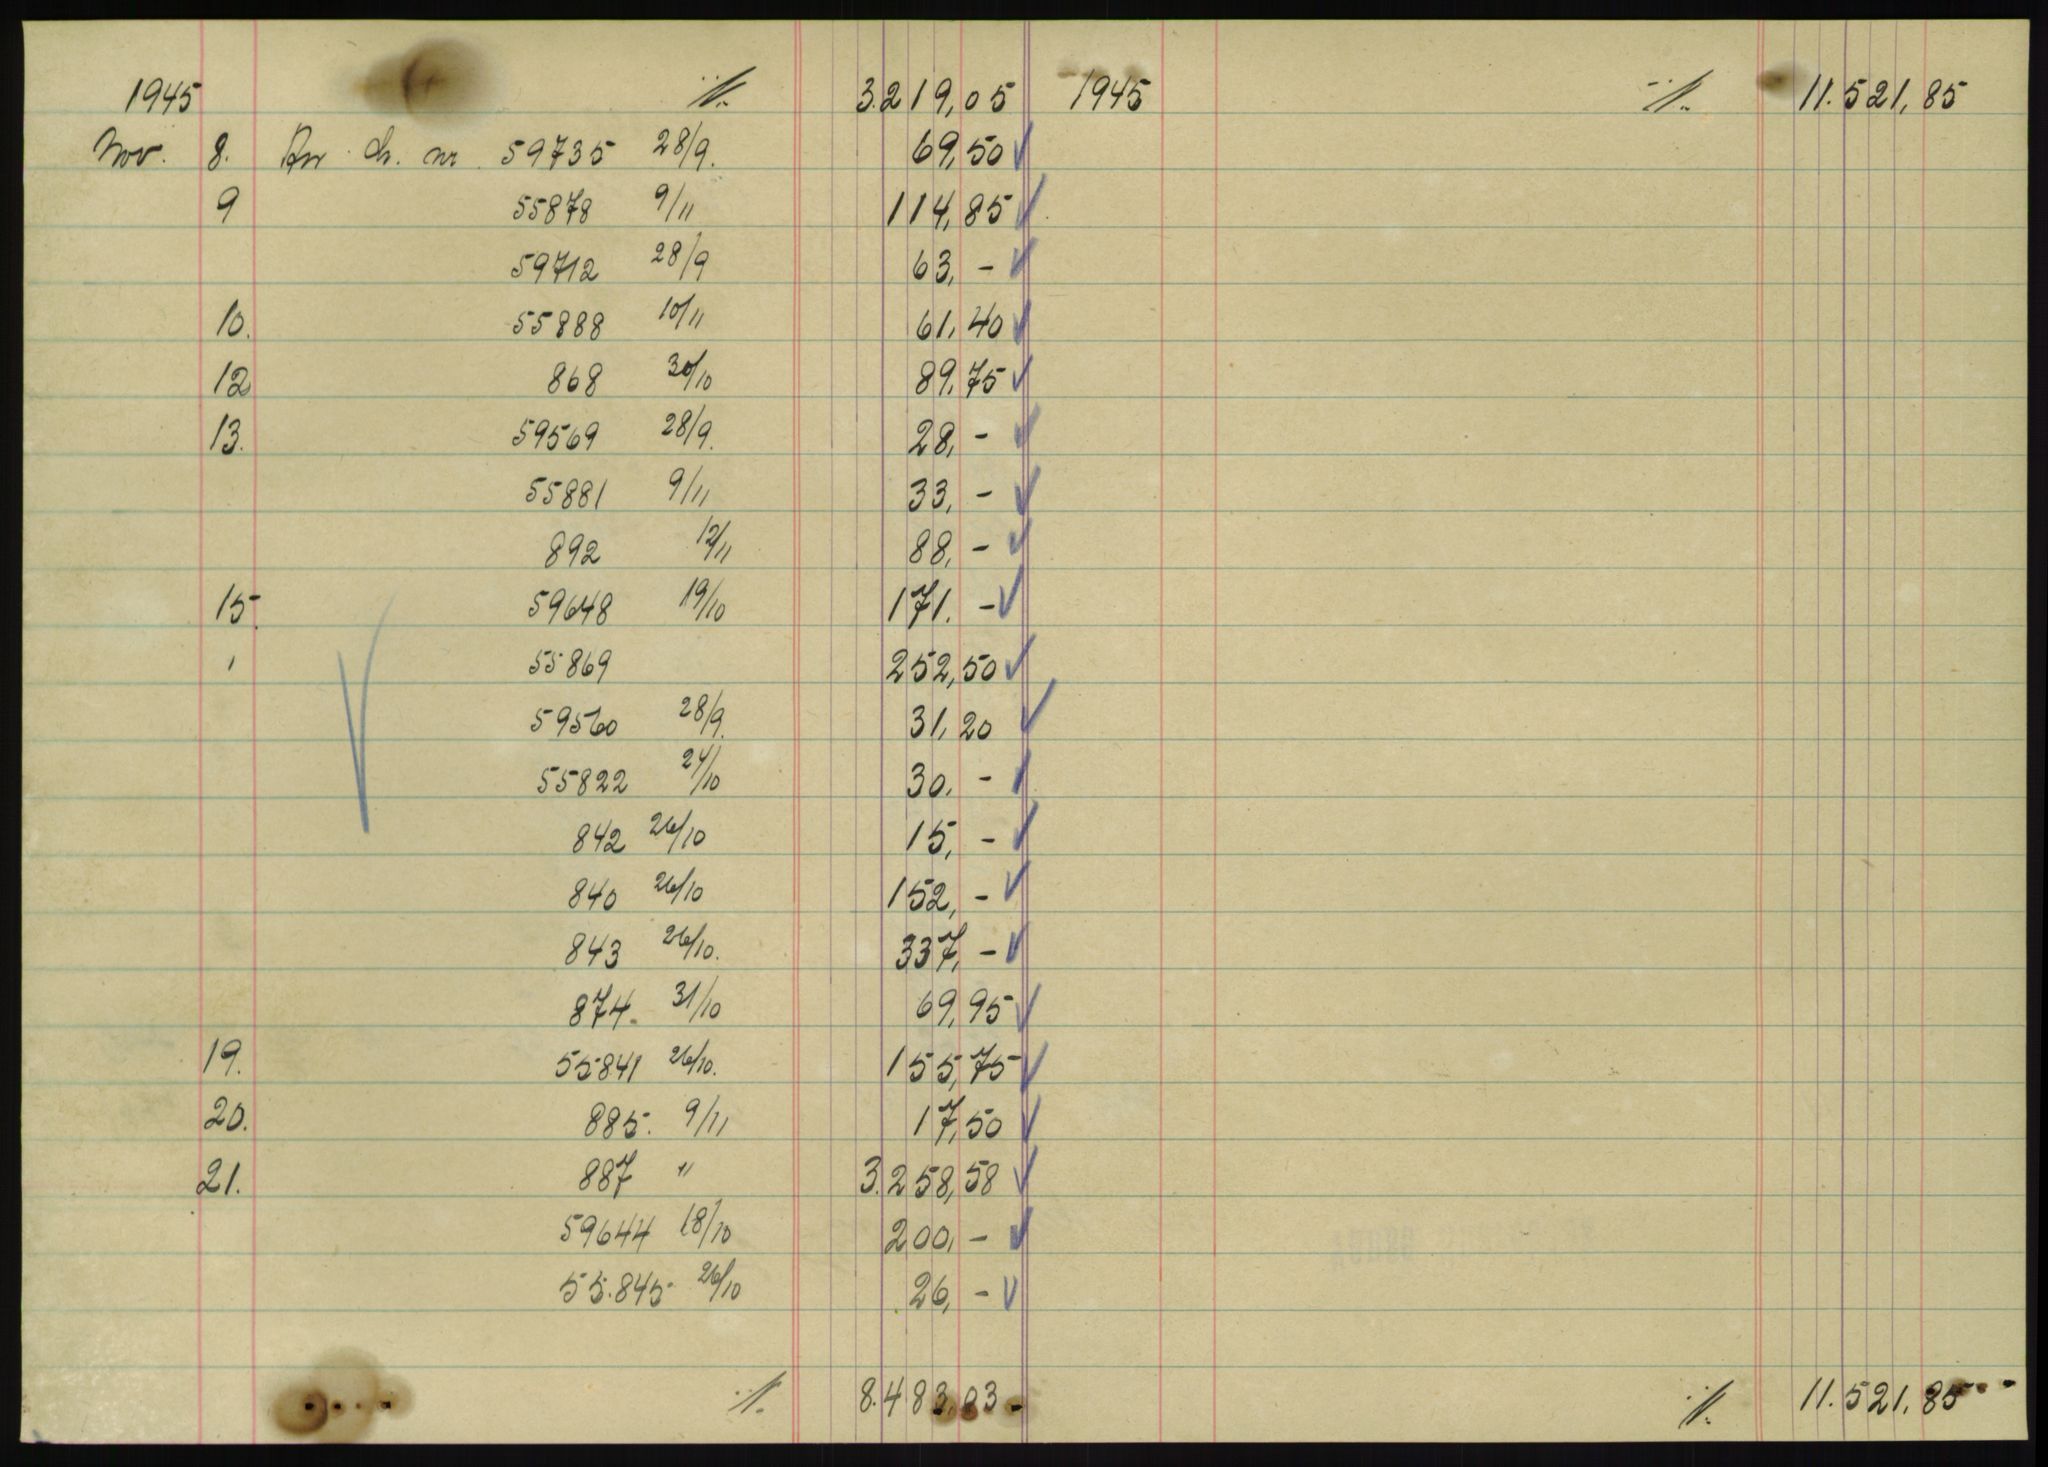 1945 ·/. 3.219,05
Nov. 8. An ch. nr. 59735 28/9. 69,50 ✓
9 55878 9/11 114,85 ✓
59712 28/9 63,- ✓
10. 55888 10/11 61,40 ✓
12 868 30/10 89,75 ✓
13. 59569 28/9. 28,- ✓
55881 9/11 33,- ✓
892 12/11 88,- ✓
15. 59648 19/10 171.- ✓
' 55869 252,50 ✓
59560 28/9. 31,20 ✓
55822 24/10 30,- ✓
842 26/10 15,- ✓
840 26/10 152,- ✓
843 26/10. 337,- ✓
874. 31/10 69,95 ✓
19. 55841 26/10. 155,75 ✓
20. 885. 9/11 17,50 ✓
21. 887 " 3.258,58 ✓
59644 18/10 200,- ✓
55.845 26/10 26,- ✓
·/. 8.483,03
1945 ·/. 11.521,85
·/. 11.521,85